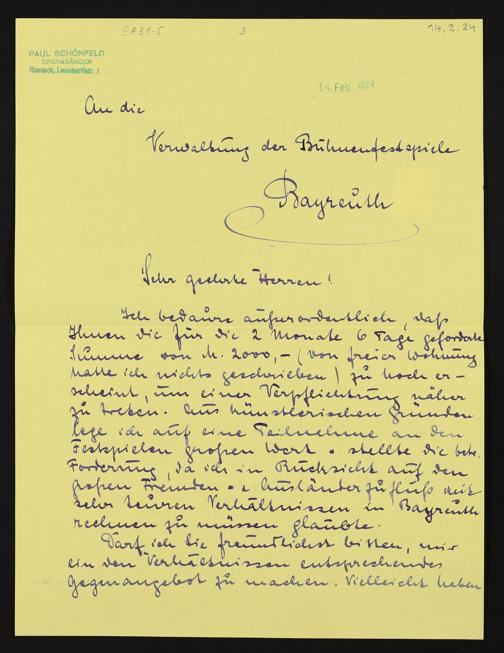 VA31-5 3 14.2.24
PAUL SCHÖNFELD
OPERNSÄNGER
Rostock, Leonhardstr. 1
14. Feb 1924
An die
Verwaltung der Bühnenfestspiele
Bayreuth
Sehr geehrte Herren!
Ich bedaure außerordentlich, daß
Ihnen die für die 2 Monate 6 Tage geforderte
Summe von M. 2000,- (von freier Wohnung
hatte ich nichts geschrieben) zu hoch er-
scheint, um einer Verpflichtung näher
zu treten. Aus künstlerischen Gründen
lege ich auf eine Teilnahme an den
Festspielen großen Wert & stellte die betr.
Forderung, da ich in Rücksicht auf den
großen Fremden- & Ausländerzufluß mit
sehr teuren Verhältnissen in Bayreuth
rechnen zu müssen glaubte.
Darf ich Sie freundlichst bitten, mir
ein den Verhältnissen entsprechendes
Gegenangebot zu machen. Vielleicht haben